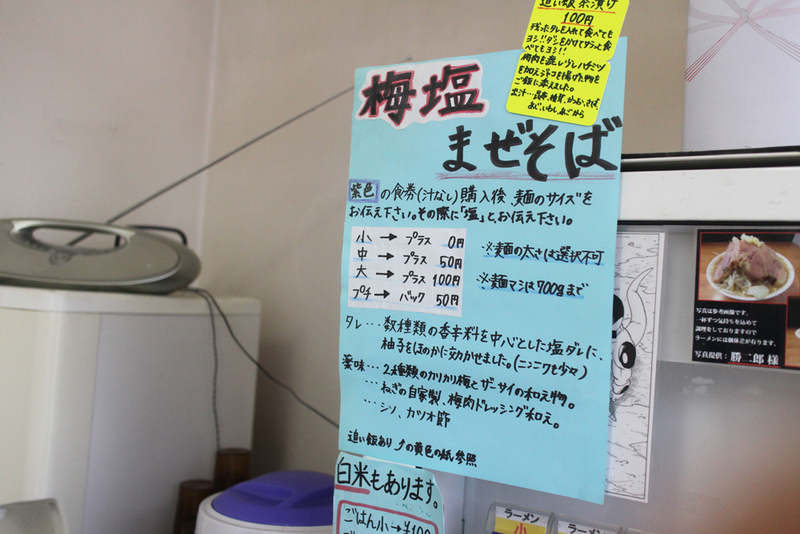 追い飯 茶漬け
100円
残ったタレを入れて食べても
ヨシ!!ダシをかけてサラっと食
べてもヨシ!!
梅肉を
を加え
ご飯に添えました。
出汁…昆布、椎茸、かつお、さば、
あじ、いわし、あご から
梅塩
まぜそば
紫色の食券(汁なし)購入後、麺のサイズを
お伝え下さい。その際に「塩」と、お伝え下さい。
小→プラス 0円
中→プラス 50円
大→プラス 100円
プチ→バック 50円
※麺の太さは選択不可
※麺マシは700gまで
タレ…数種類の香辛料を中心とした塩ダレに、
柚子をほのかに効かせました。(ニンニクも少々)
薬味…2種類のカリカリ梅とザーサイの和え物。
…ねぎの自家製、梅肉ドレッシング和え。
…シソ、カツオ節
追い飯あり⤴の黄色の紙参照
白米もあります。
ごはん小→¥100
写真は参考画像です。
一杯ずつ気持ちを込めて
調理をしておりますので
ラーメンには個体差が有ります。
写真提供:勝二郎 様
ラーメン
小
ラーメン